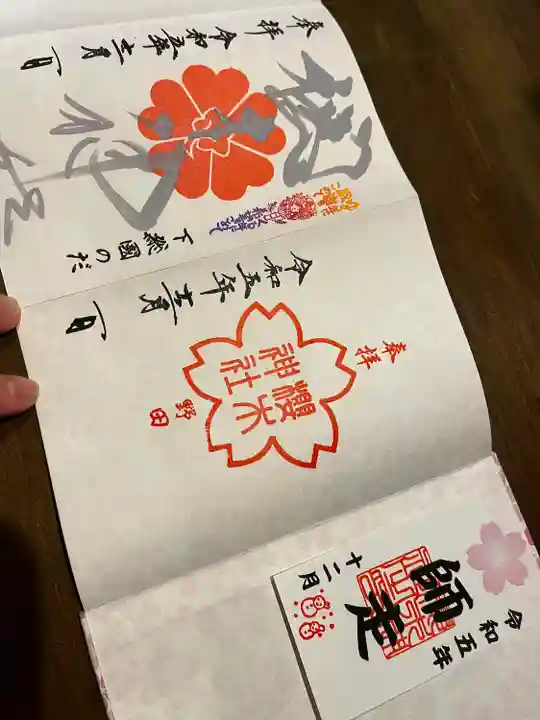 奉拝
令和五年十二月一日
櫻木神社
下総国のだ
奉拝
櫻木神社
野田
令和五年十二月一日
令和五年
師走
十二月